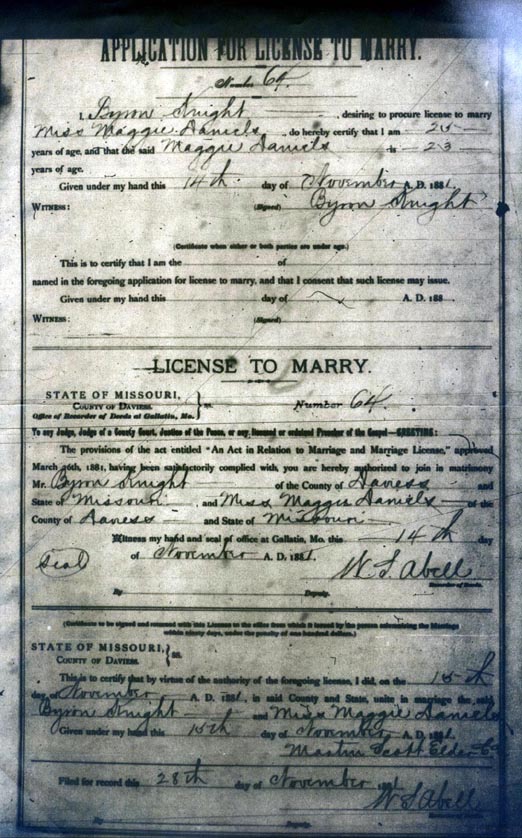 APPLICATION FOR LICENSE TO MARRY.
Number 64.
I, Byron Knight, desiring to procure license to marry
Miss Maggie Daniels, do hereby certify that I am 25
years of age, and that the said Maggie Daniels is 23
years of age.
Given under my hand this 14th day of November A. D. 1881.
WITNESS: (Signed) Byron Knight
(Certificate when either or both parties are under age.)
This is to certify that I am the of
named in the foregoing application for license to marry, and that I consent that such license may issue.
Given under my hand this day of A. D. 188 .
WITNESS: (Signed)
LICENSE TO MARRY.
STATE OF MISSOURI, } ss. Number 64.
COUNTY OF DAVIESS.
Office of Recorder of Deeds at Gallatin, Mo.
To any Judge, Judge of a County Court, Justice of the Peace, or any licensed or ordained Preacher of the Gospel—GREETING:
The provisions of the act entitled "An Act in Relation to Marriage and Marriage License," approved
March 26th, 1881, having been satisfactorily complied with, you are hereby authorized to join in matrimony
Mr. Byron Knight of the County of Daviess and
State of Missouri, and Miss Maggie Daniels of the
County of Daviess and State of Missouri
Witness my hand and seal of office at Gallatin, Mo. this 14th day
(Seal) of November A. D. 1881.
W. S. Abell
Recorder of Deeds.
By Deputy.
(Certificate to be signed and returned with this License to the office from which it issued by the person solemnizing the Marriage
within ninety days, under the penalty of one hundred dollars.)
STATE OF MISSOURI, } ss.
COUNTY OF DAVIESS.
This is to certify that by virtue of the authority of the foregoing license, I did, on the 15th
day of November A. D. 1881, in said County and State, unite in marriage the said
Byron Knight and Miss Maggie Daniels
Given under my hand this 15th day of November A. D. 1881.
Martin Scott Elder
Filed for record this 28th day of November 1881
W. S. Abell
By Deputy.